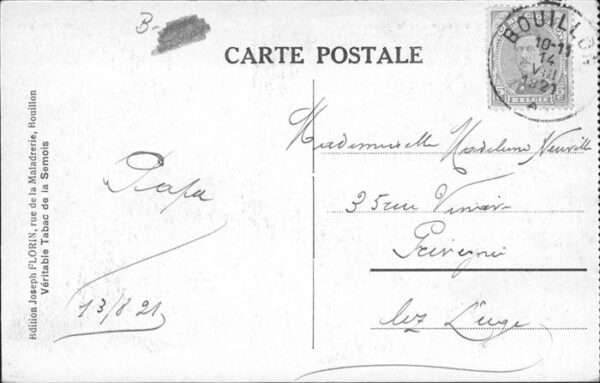 B-
CARTE POSTALE
BOUILLON
10-11
14
VIII
1921
Mademoiselle Madeleine Neuville
35 rue
lez Liége
Papa
13/8 21
Edition Joseph FLORIN, rue de la Maladrerie, Bouillon
Véritable Tabac de la Semois